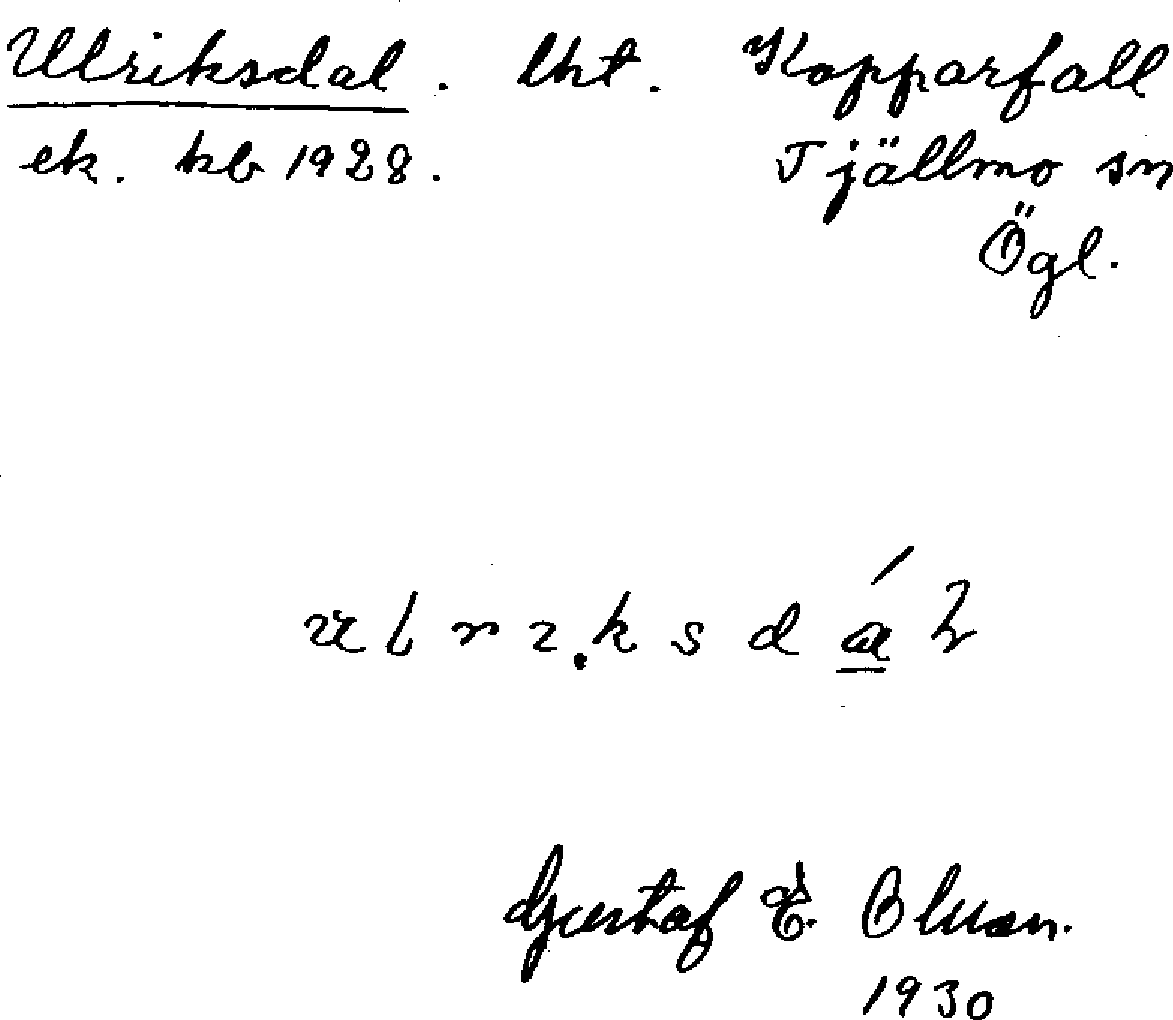 Ulriksdal. lht. Kopparfall
ek. kb 1928. Tjällmo sn
Ögl.
u l r ı . k s d á l
Gustaf E.
1930